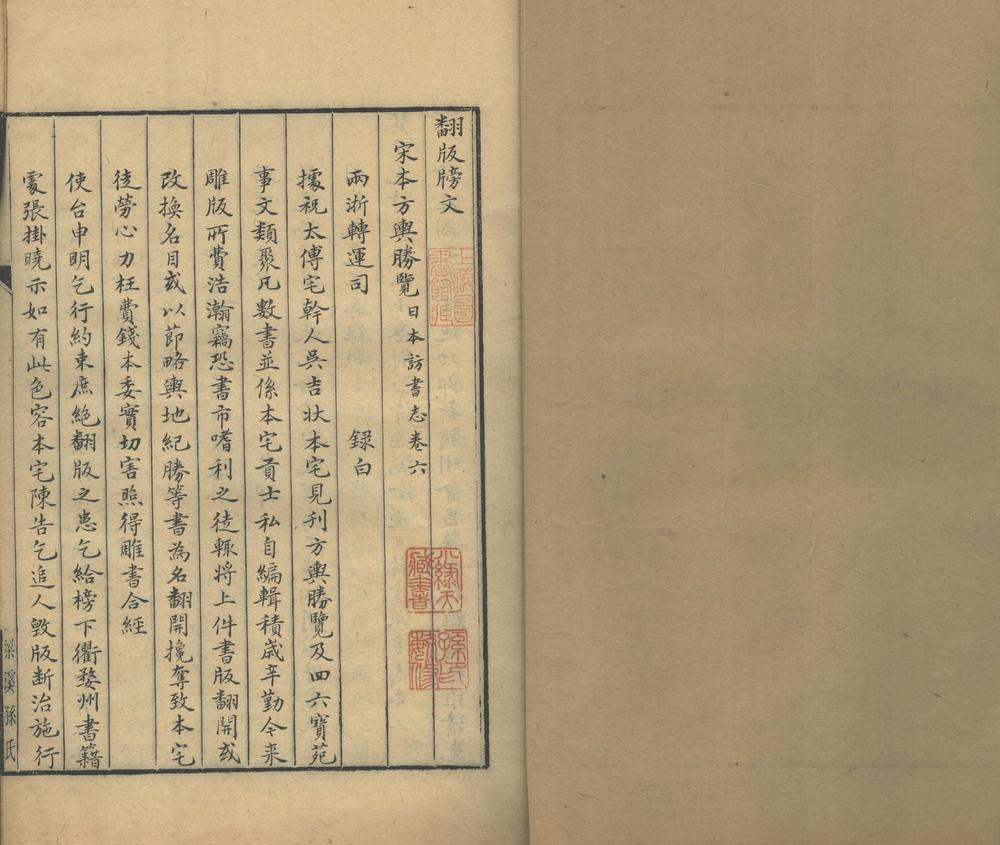 翻版牓文
宋本方輿勝覽 日本訪書志卷六
兩浙轉運司 録白
據祝太傅宅幹人吳吉狀本宅見刋方輿勝覽及四六寶苑
事文類聚凡數書並係本宅貢士私自編輯積歳辛勤今来
雕版所費浩瀚竊恐書市嗜利之徒輒將上件書版翻開或
改換名目或以節略輿地紀勝等書為名翻開攙奪致本宅
徒勞心力枉費錢本委實切害照得雕書合經
使台申明乞行約束庶絶翻版之患乞給榜下衢婺州書籍
處張掛曉示如有此色容本宅陳告乞追人毀版断治施行
梁溪孫氏
上海圖書館藏
小綠天藏書